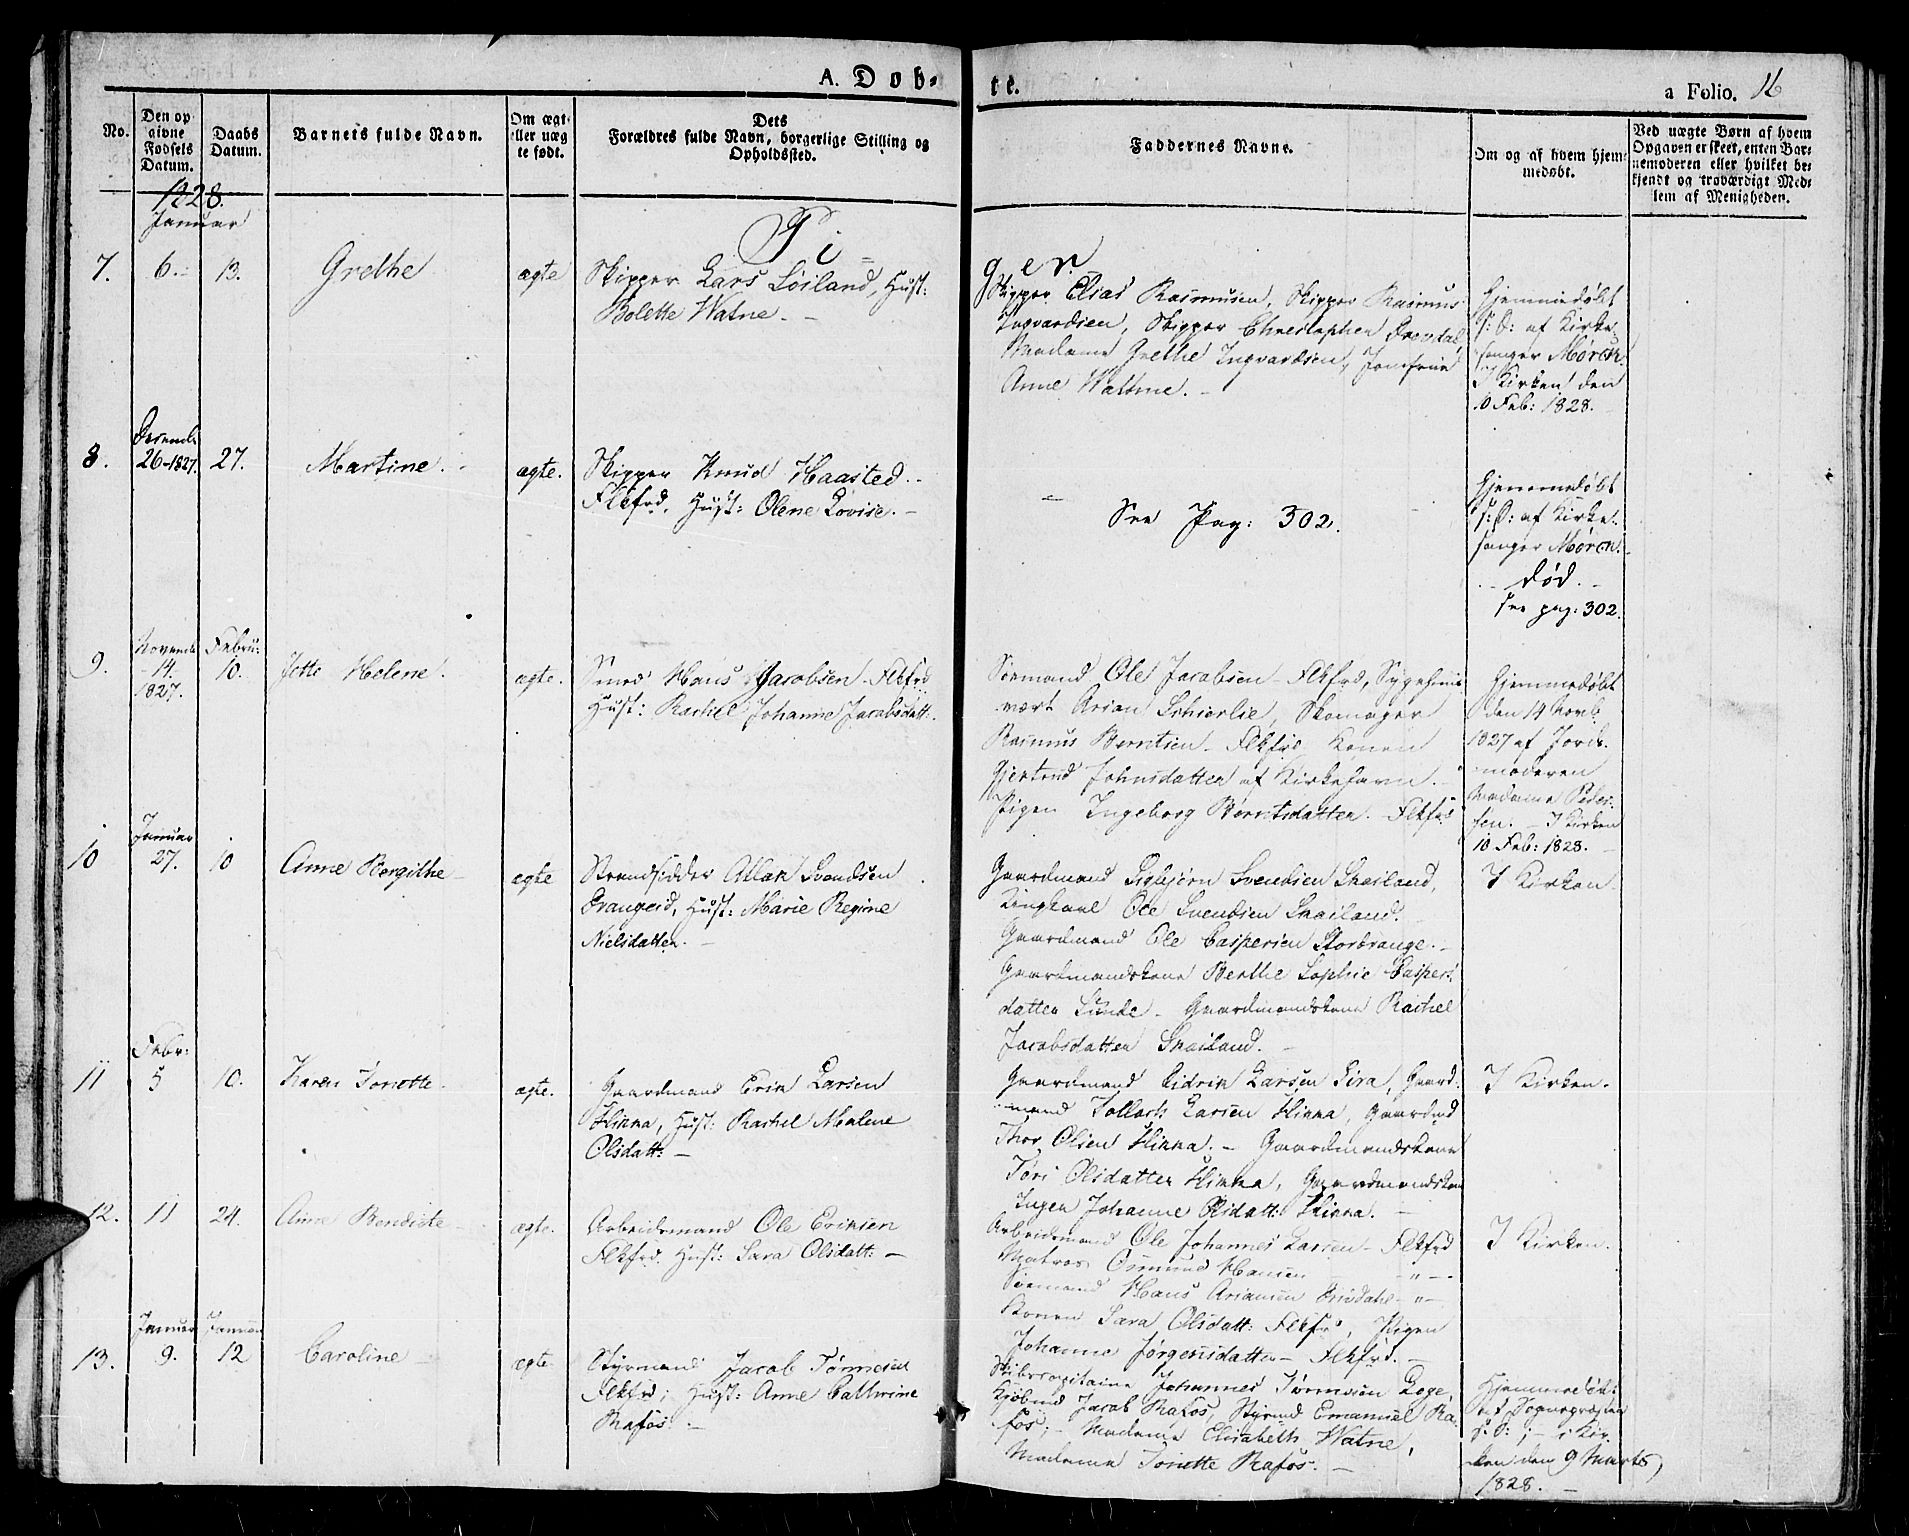 A. Døb-
te.
a Folio. 16
No.
Den op
givne
Fødsels
Datum.
Daabs
Datum.
Barnets fulde Navn.
Om ægt-
eller uæg
te født.
Dets
Forældres fulde Navn, borgerlige Stilling og
Opholdssted.
Faddernes Navne.
Om og af hvem hjem-
medøbt.
Ved uægte Børn af hvem
Opgaven er skeet, enten Bar-
nemoderen eller hvilket be-
kjendt og troværdigt Med-
lem af Menigheden.
1828.
Januar
Pi =
ger
7. 6. 13. Grethe ægte
Skipper Lars Loiland, Hust:
Bolette Watne. -
Skipper Elias Rasmusen, Skipper Rasmus
Ingvardsen, Skipper Christopher
Madame Grethe Ingvardsen, Jomfrue
Anne Wattne. -
Hjemmedøbt
s: D: af Kirke-
sanger Møren.
I Kirken den
10 Feb: 1828.
8. Decemb. 26-1827. 27. Martine. ægte.
Skipper Knud Haasted. -
Flkfrd. Hust: Olene Lovise. -
See Pag: 302.
Hjemmedøbt
s: D: af Kirke-
sanger Møren.
- død. -
see pag: 302.
9. Novemb. 14. 1827. Febru: 10. Jette Helene. ægte.
Smed Hans Jacobsen - Flkfrd
Hust: Rachel Johanne Jacobsdatt:
Søemand Ole Jacobsen - Flkfrd, Sygehuus
vært Arian Schierlie, Skomager
Rasmus Berntsen - Flkfrd Konen
Gjertrud Johnsdatter af Kirkehavn. -
Pigen Ingeborg Berntsdatter. Flkfrd
Hjemmedøbt
den 14 Novb.
1827 af Jorde-
moderen
Madame Peder-
sen. - I Kirken
10 Feb: 1828. -
10 Januar 27. 10 Anne Bergithe - ægte
Strandsidder Atlak Svendsen
Drangeid, Hust: Marie Regine
Nielsdatter. -
Gaardmand Sigbjørn Svendsen Skailand,
Ungkarl Ole Svendsen Skailand. -
Gaardmand Ole Caspersen Storbrange. -
Gaardmandskone Berthe Sophie Caspers-
datter Sunde - Gaardmandskone Rachel
Jacobsdatter Skailand. -
I Kirken.
11 Febr: 5 10. Karen Tonette. ægte.
Gaardmand Erik Larsen
Hinna, Hust: Rachel Malene
Olsdatt: -
Gaardmand Sidrik Larsen Sira, Gaard-
mand Tollack Larsen Hinna, Gaardmd
Thor Olsen Hinna. - Gaardmandskone
Tøri Olsdatter Hinna, Gaardmandskon
Ingen Johanne Olsdatt: Hinna. -
I Kirken.
12. 11 24. Anne Bendicte - ægte.
Arbeidsmand Ole Eriksen
Flkfrd. Hust: Sara Olsdatt: -
Arbeidsmand Ole Johannes Larsen - Flkfrd
Matros Osmund Hansen - " -
Søemand Hans Ariansen - " -
Konen Sara Olsdatt: Flkfrd, Pigen
Johanne Jørgensdatter - Flkfrd. -
I Kirken.
13. Januar 9. Januar 12 Caroline - ægte.
Styrmand Jacob Tønnesen
Flkfrd; Hust: Anne Cathrine
Rafos. -
Skibscapitaine Johannes Tønnesen Lege,
Kjøbmd Jacob Rafos, Styrmd Emanuel Ra-
fos; - Madame Elisabeth Watne,
Madame Tonette Rafos. -
Hjemmedøbt
af Sognepræsten
s: D: ; - i Kir-
ken den 9 Marts,
1828. -